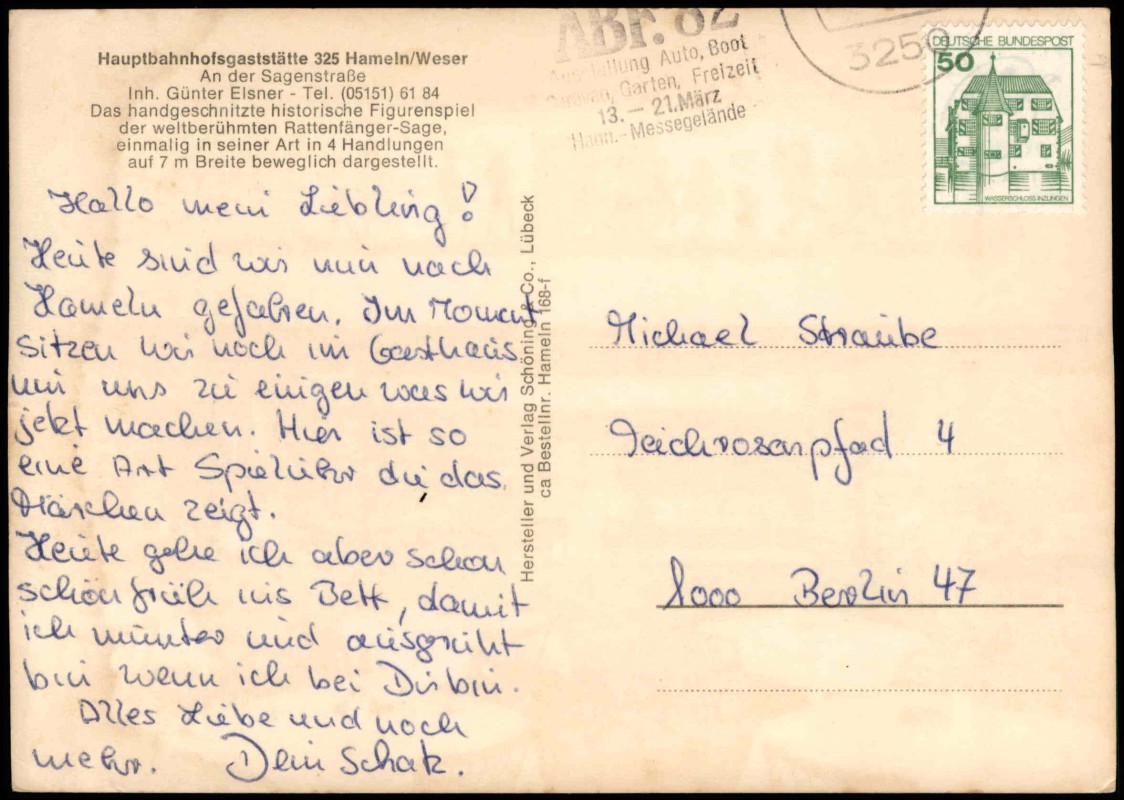 Hauptbahnhofsgaststätte 325 Hameln/Weser
An der Sagenstraße
Inh. Günter Elsner - Tel. (05151) 61 84
Das handgeschnitzte historische Figurenspiel
der weltberühmten Rattenfänger-Sage,
einmalig in seiner Art in 4 Handlungen
auf 7 m Breite beweglich dargestellt.
Hallo mein Liebling!
Heute sind wir nun nach
Hameln gefahren. Im Moment
sitzen wir noch im Gasthaus
um uns zu einigen was wir
jetzt machen. Hier ist so
eine Art Spieluhr die das
Märchen zeigt.
Heute gehe ich aber schon
schön früh ins Bett, damit
ich munter und ausgeruht
bin wenn ich bei Dir bin.
Alles Liebe und noch
mehr. Dein Schatz.
Hersteller und Verlag Schöning & Co., Lübeck
ca Bestellnr. Hameln 168-f
ABF. 82
Ausstellung Auto, Boot
Caravan, Garten, Freizeit
13. – 21. März
Hann.-Messegelände
3250
DEUTSCHE BUNDESPOST
50
WASSERSCHLOSS INZLINGEN
Michael Straube
Teichrosenpfad 4
1000 Berlin 47